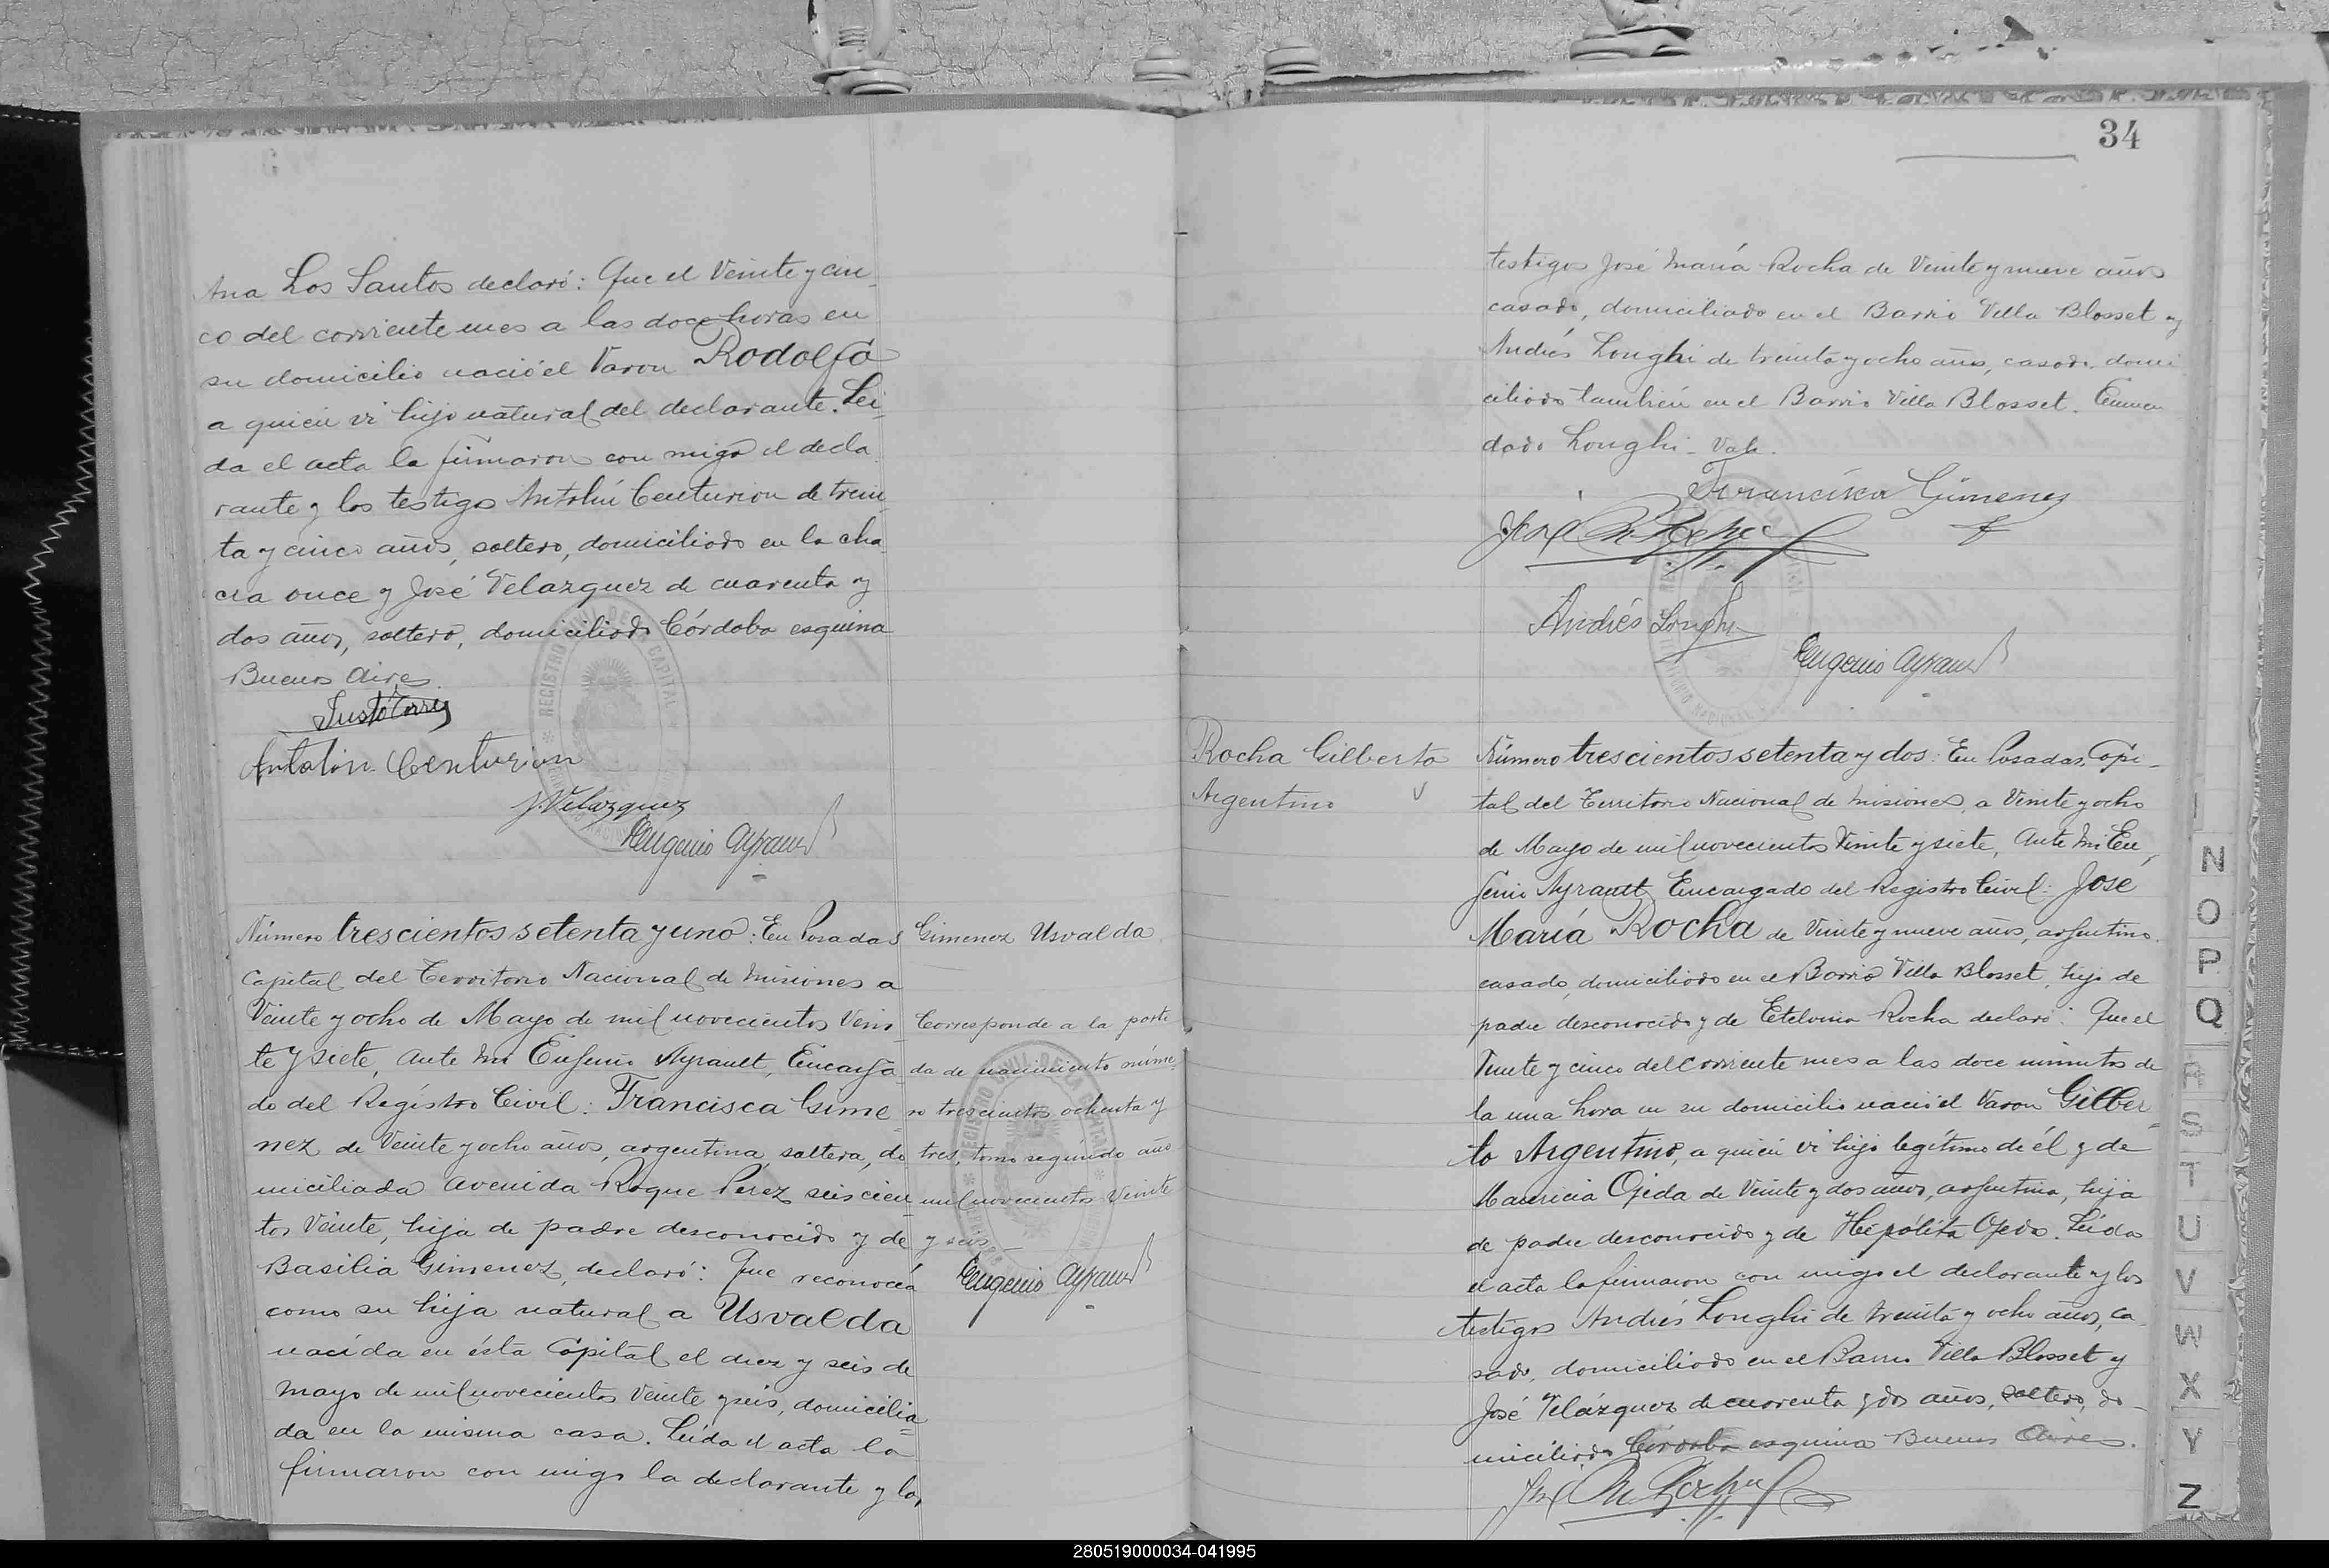 Ana Los Santos declaró: Que el Veinte y cin_
co del corriente mes a las doce horas en
su domicilio nació el Varon Rodolfo
a quién vi hijo natural del declarante. Lei_
da el acta la firmaron con migo el decla_
rante y los testigos Antolín Centurion de trein_
ta y cinco años, soltero, domiciliado en la cha_
cra once y José Velazquez de cuarenta y
dos años, soltero, domiciliado Córdoba esquina
Buenos Aires.
Justo Torres
Antolin Centurion
J. Velazquez
Eugenio Ayrault
Número trescientos setenta y uno: En Posadas
Capital del Territorio Nacional de Misiones a
Veinte y ocho de Mayo de mil novecientos Vein
te y siete, Ante Mi Eugenio Ayrault, Encarga_
do del Registro Civil: Francisca Gime_
nez de Veinte y ocho años, argentina, soltera, do
miciliada Avenida Roque Perez seiscien
tos Veinte, hija de padre desconocido y de
Basilia Gimenez, declaró: Que reconocía
como su hija natural a Usvalda
nacida en ésta Capital el diez y seis de
Mayo de mil novecientos Veinte y seis, domicilia_
da en la misma casa. Leída el acta la
firmaron con migo la declarante y los
Gimenez Usvalda
Corresponde a la parti
da de nacimiento núme_
ro trescientos ochenta y
tres, tomo segundo año
mil novecientos Veinte
y seis_
Eugenio Ayrault
34
testigos José María Rocha de Veinte y nueve años
casado, domiciliado en el Barrio Villa Blosset y
Andrés Longhi de treinta y ocho años, casado, domi
ciliado también en el Barrio Villa Blosset. Enmen
dado Longhi_ Vale.
Francisca Gimenez
José M. Rocha
Andrés Longhi
Eugenio Ayrault
Rocha Gilberto
Argentino
Número trescientos setenta y dos: En Posadas, Capi_
tal del Territorio Nacional de Misiones, a Veinte y ocho
de Mayo de mil novecientos Veinte y siete, Ante Mi Eu_
genio Ayrault, Encargado del Registro Civil: José
María Rocha de Veinte y nueve años, argentino,
casado, domiciliado en el Barrio Villa Blosset, hijo de
padre desconocido y de Etelvina Rocha declaró: Que el
Veinte y cinco del corriente mes a las doce minutos de
la una hora en su domicilio nació el Varon Gilber_
to Argentino, a quién vi hijo legítimo de él y de
Mauricia Ojeda de Veinte y dos años, argentina, hija
de padre desconocido y de Hipólita Ojeda. Leída
el acta la firmaron con migo el declarante y los
testigos Andrés Longhi de treinta y ocho años, ca_
sado, domiciliado en el Barrio Villa Blosset y
José Velázquez de cuarenta y dos años, soltero, do_
miciliado Córdoba esquina Buenos Aires.
José M. Rocha
N
O
P
Q
R
S
T
U
V
W
X
Y
Z
280519000034-041995